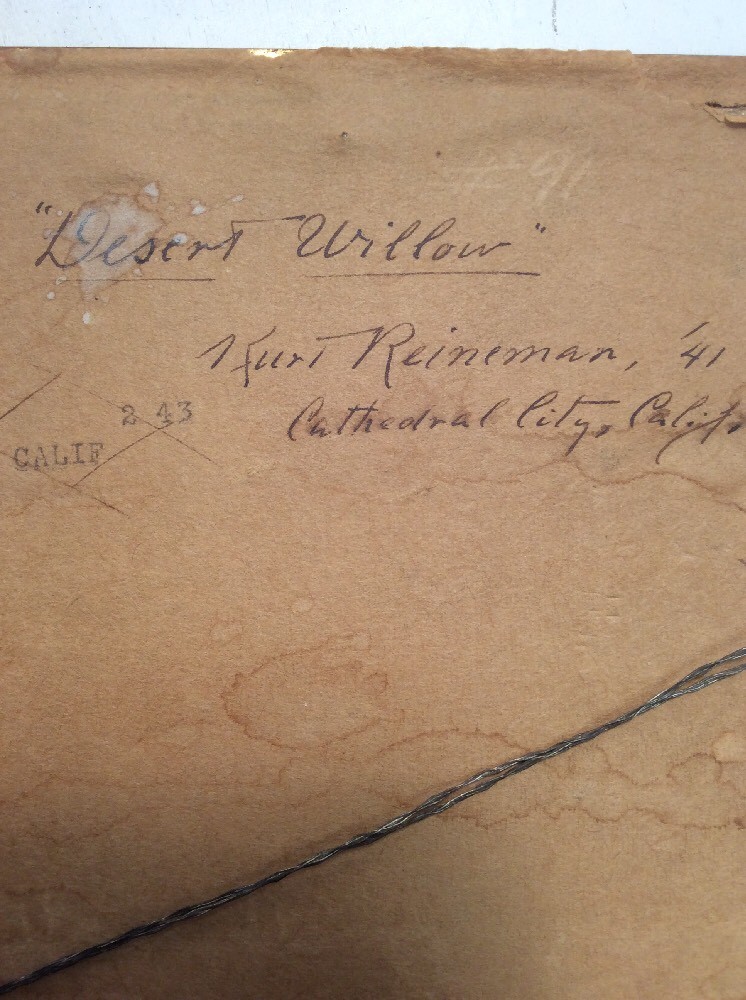 # 91
"Desert Willow"
Kurt Reineman, '41
Cathedral City, Calif.
2 43
CALIF